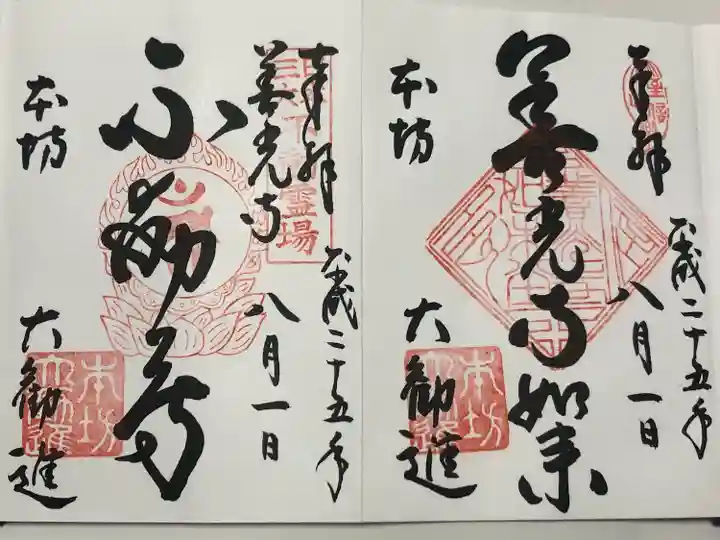 奉拝
平成二十五年
八月一日
善光寺如来
本坊
大勧進
本坊
大勧進
奉拝
善光寺
平成二十五年
八月一日
霊場
不動尊
本坊
大勧進
本坊
大勧進